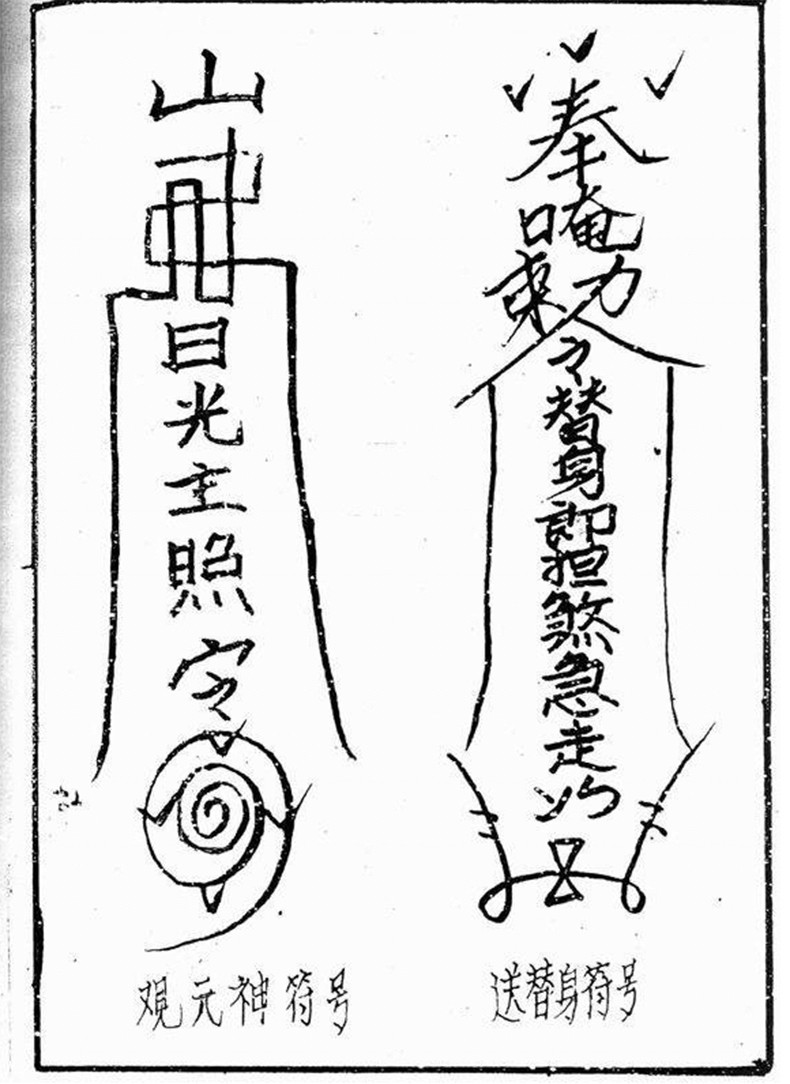 山
日光主照令
覌元神符号
奉唵勅令替身即担煞急走
送替身符号